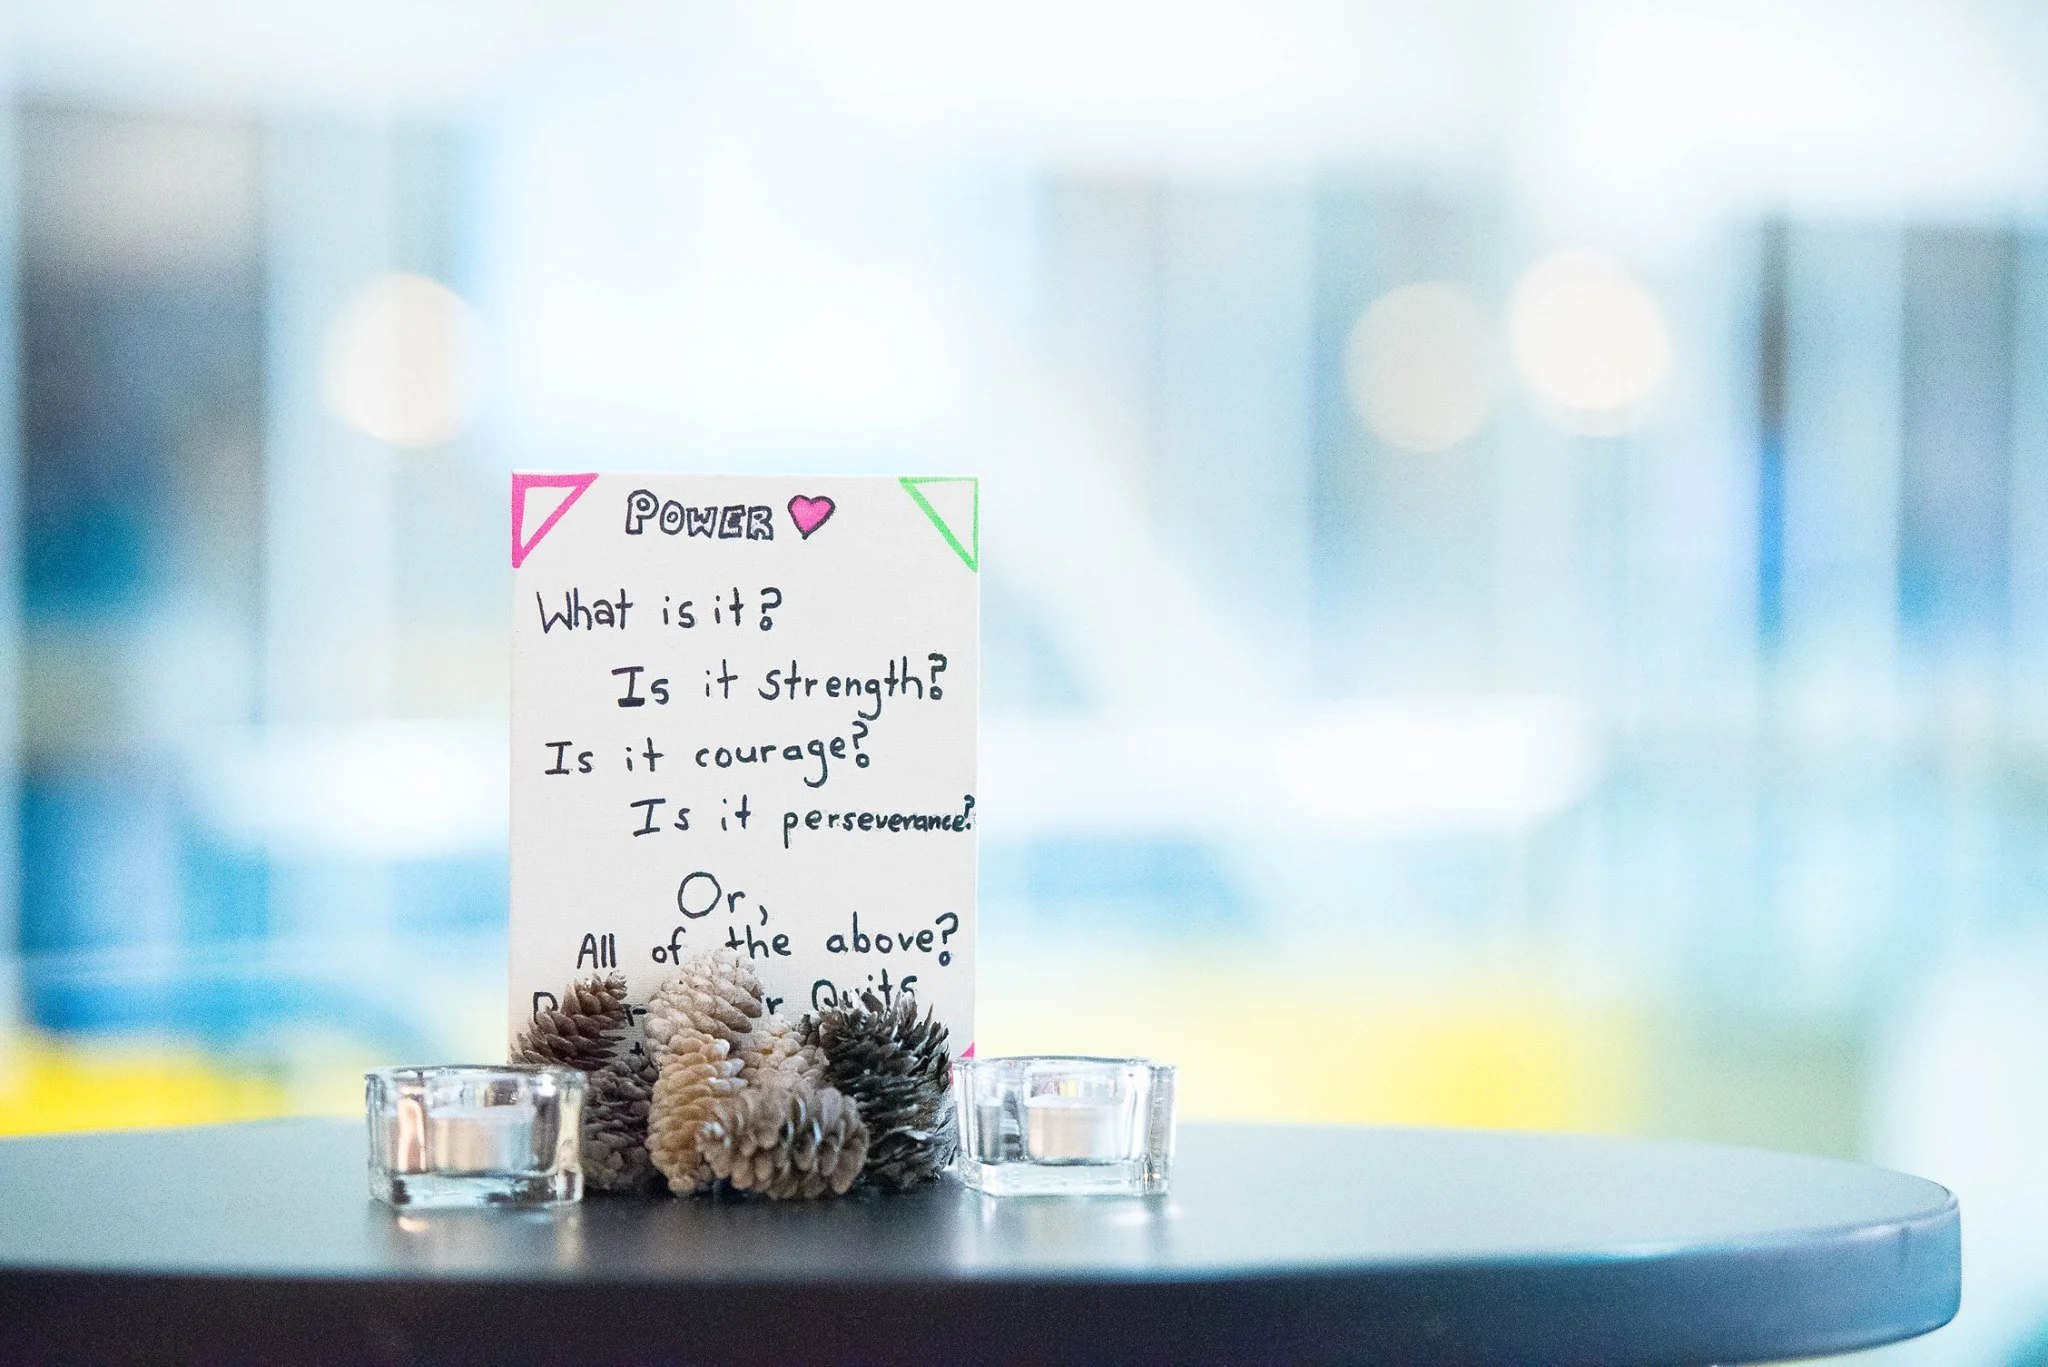 POWER
What is it?
Is it strength?
Is it courage?
Is it perseverance?
Or,
All of the above?
Quits